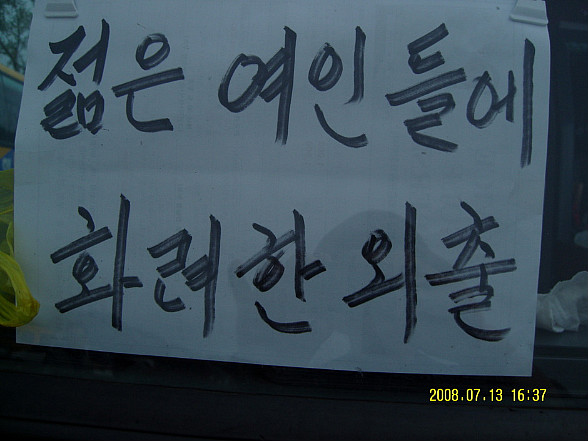 젊은 여인들에
화려한 외출
2008.07.13 16:37